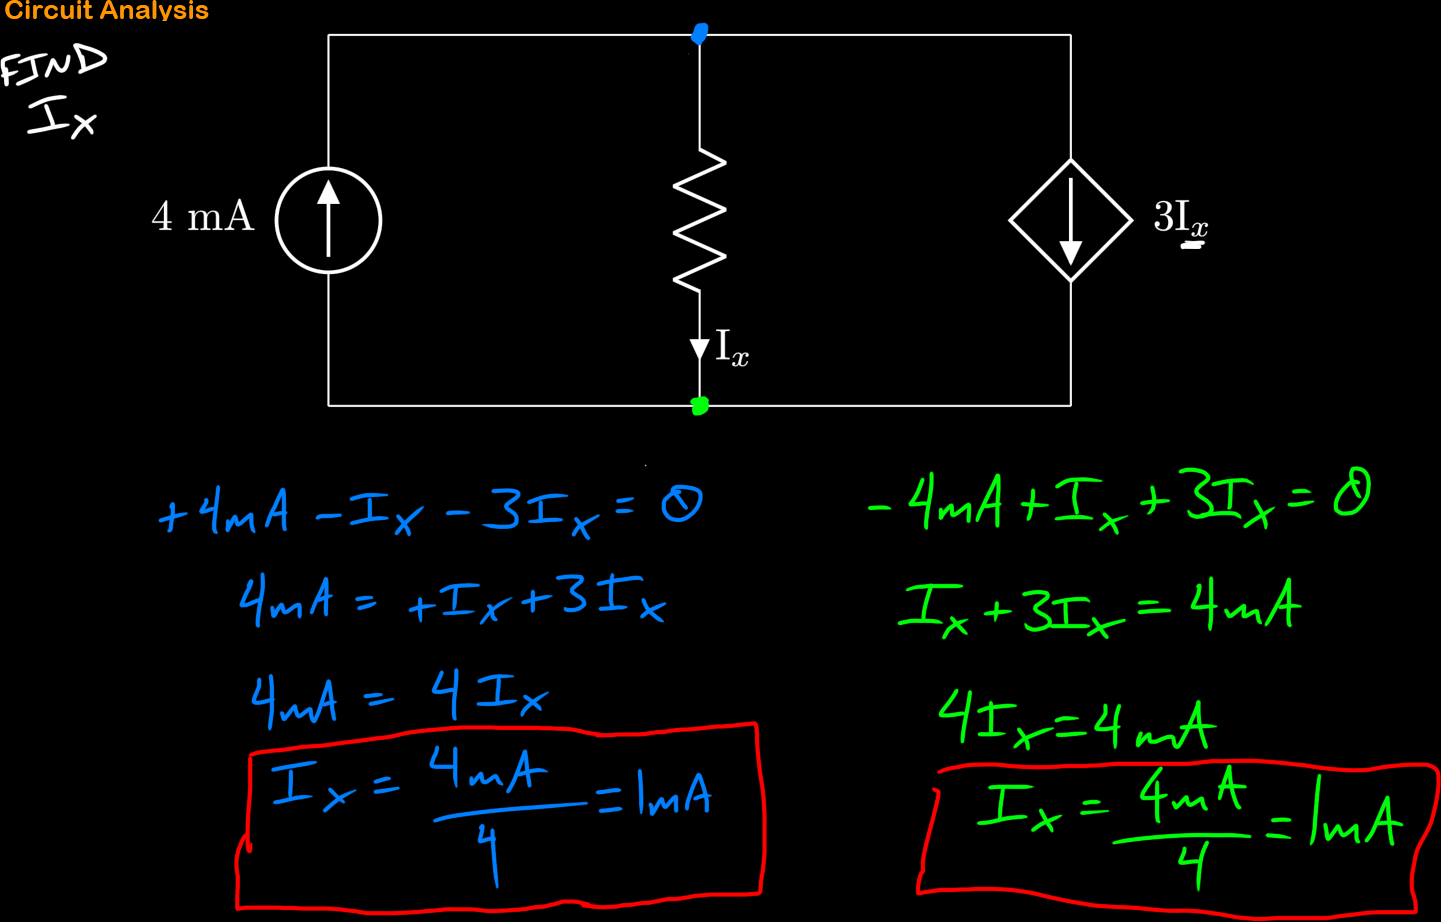 Circuit Analysis
FIND
Ix
4 mA
3Ix
Ix
+4mA - Ix - 3Ix = 0
4mA = +Ix + 3Ix
4mA = 4Ix
Ix = 4mA/4 = 1mA
-4mA + Ix + 3Ix = 0
Ix + 3Ix = 4mA
4Ix = 4mA
Ix = 4mA/4 = 1mA